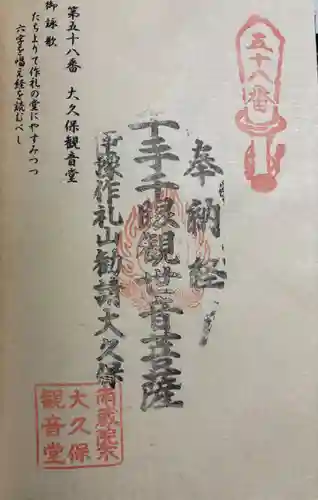 五十八番
奉納経
千手千眼観世音菩薩
作礼山勧請大久保
大久保
観音堂
第五十八番　大久保観音堂
御詠歌
たちよりて作礼の堂にやすみつつ
六字を唱え経を読むべし